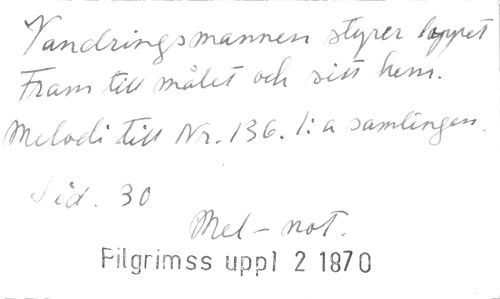 Vandringsmannen styrer loppet
Fram till målet och sitt hem.
Melodi till Nr. 136. 1:a samlingen.
Sid. 30
Mel-not.
Pilgrimss uppl 2 1870